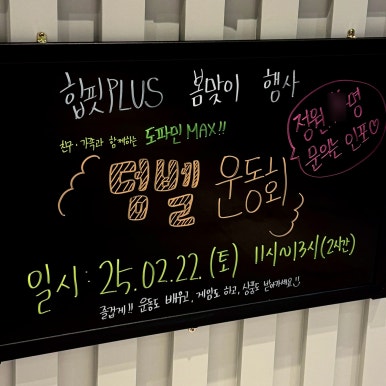 힙핏PLUS 봄맞이 행사
친구·가족과 함께하는 도파민 MAX!!
정원 명
문의는 인포♡
덤벨 운동회
일시: 25.02.22.(토) 11시~13시(2시간)
즐겁게!! 운동도 배우고, 게임도 하고, 상품도 받아가세요!!